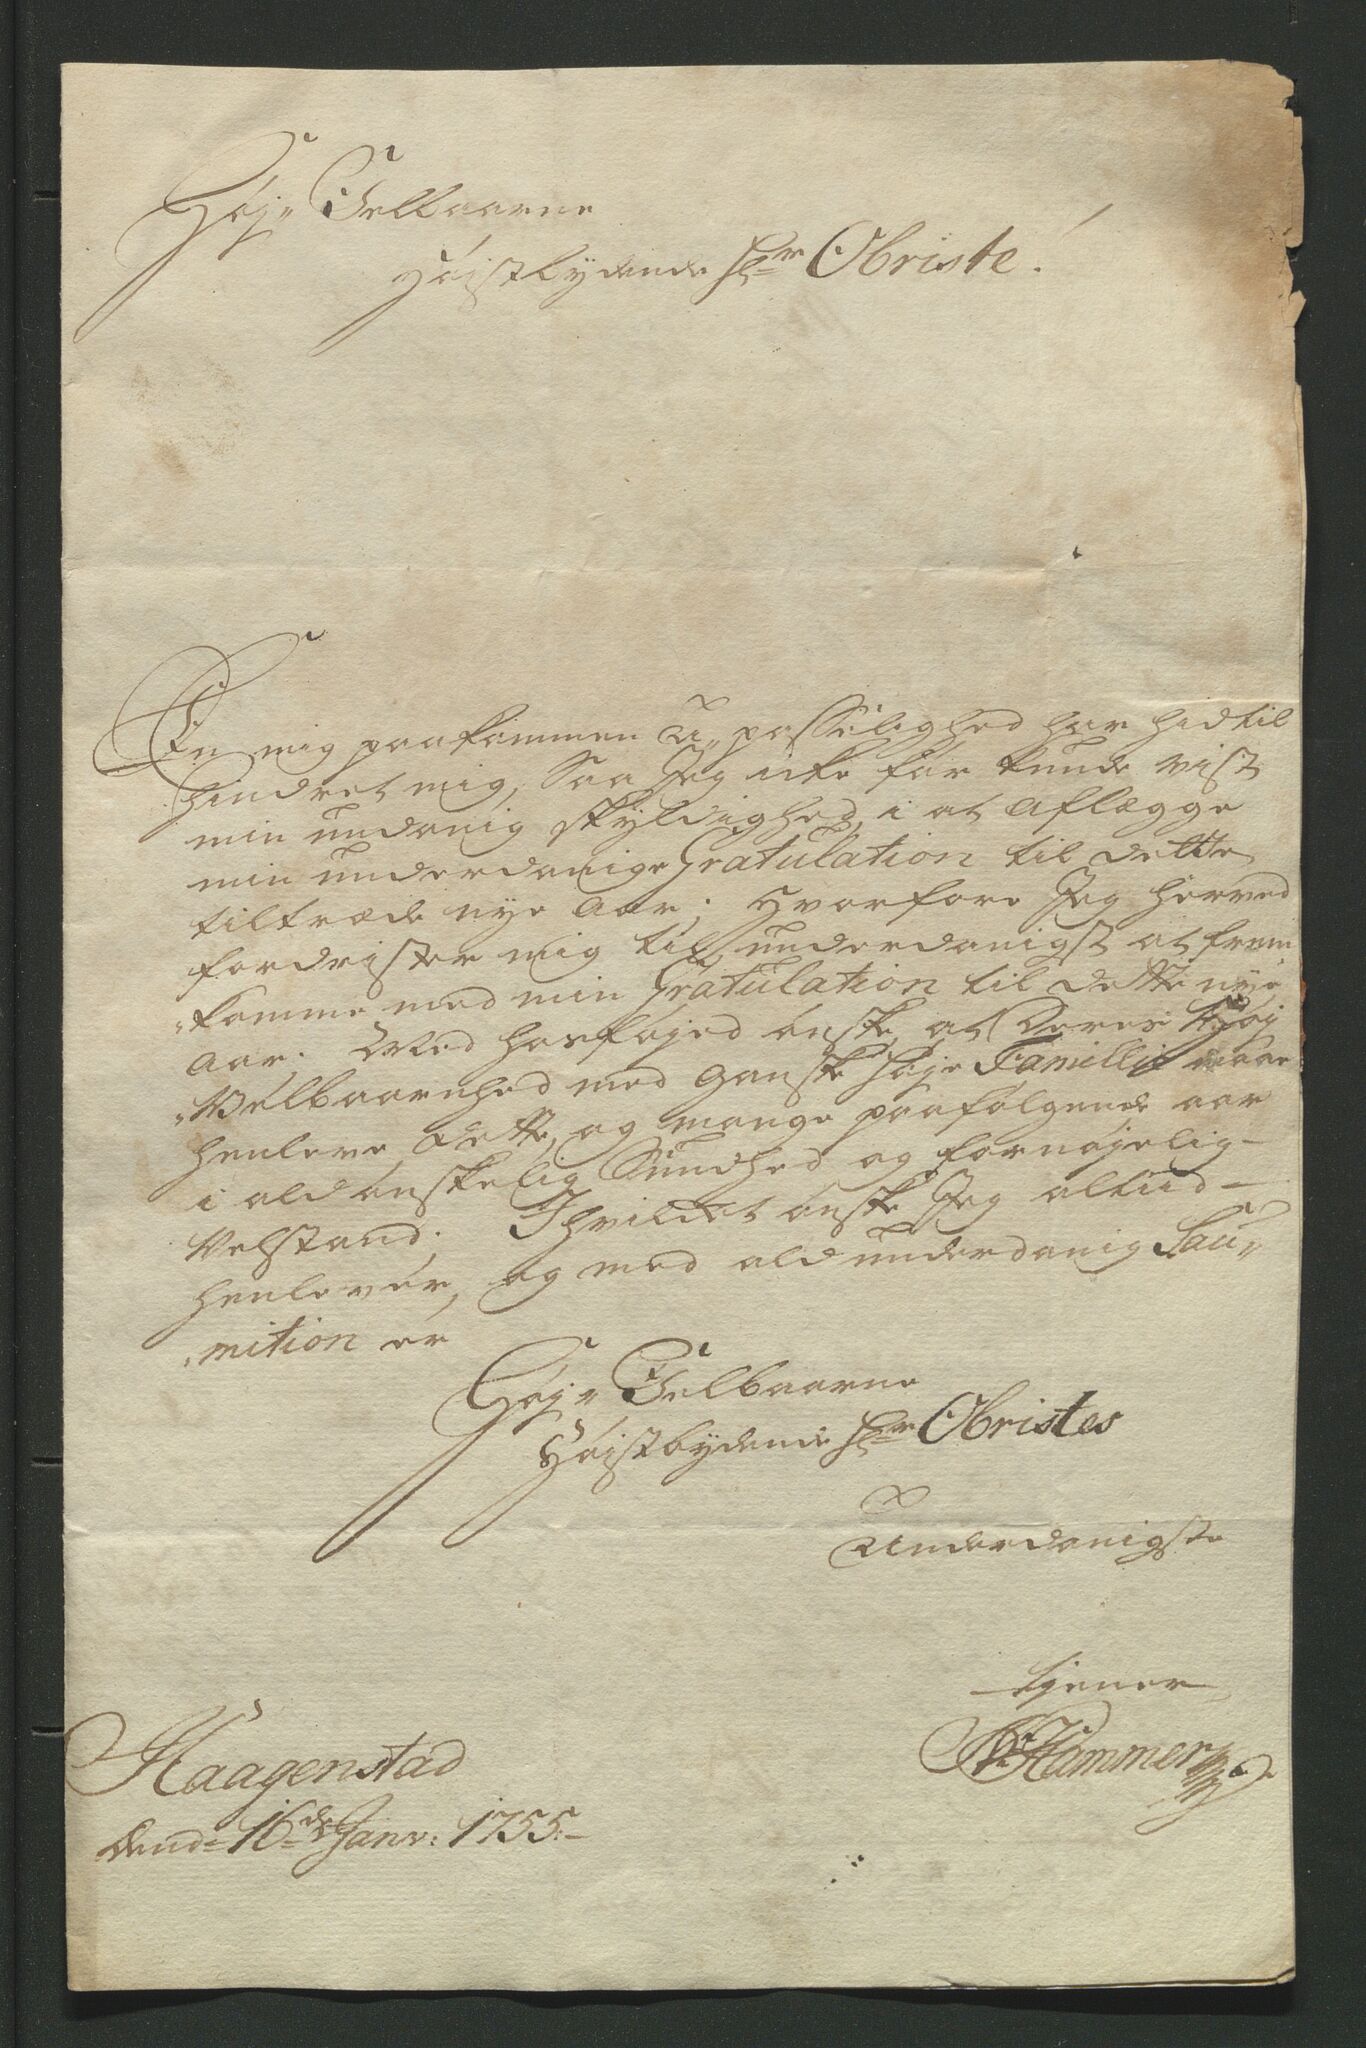 Høj„ Velbaarne
Høistbydende Hr Obriste!
En mig paakommen U„passelighed har hidtil
hindret mig, Saa Jeg icke før kunde vist
min undanig skyldighed, i at aflægge
min underdanige Gratulation til dette
tiltræde nye Aar; Hvorfore Jeg herved
fordrister mig til underdanigst at frem
„komme med min Gratulation til dette nye
Aar. Med hosføjed ønske, at Deres Høj
„Velbaarnhed med ganske høje Famillie maae
henleve dette, og mange paafølgende aar
i ald ønskelig Sundhed og fornøjelig
Velstand. I hvilket ønske Jeg altiid
henlever, og med ald underdanig Sou„
„mition er
Høj„ Velbaarne
Høistbydende Hr Obristes
Underdanigste
tjener
Hammer
Haagenstad
dend 16de Janv: 1755.